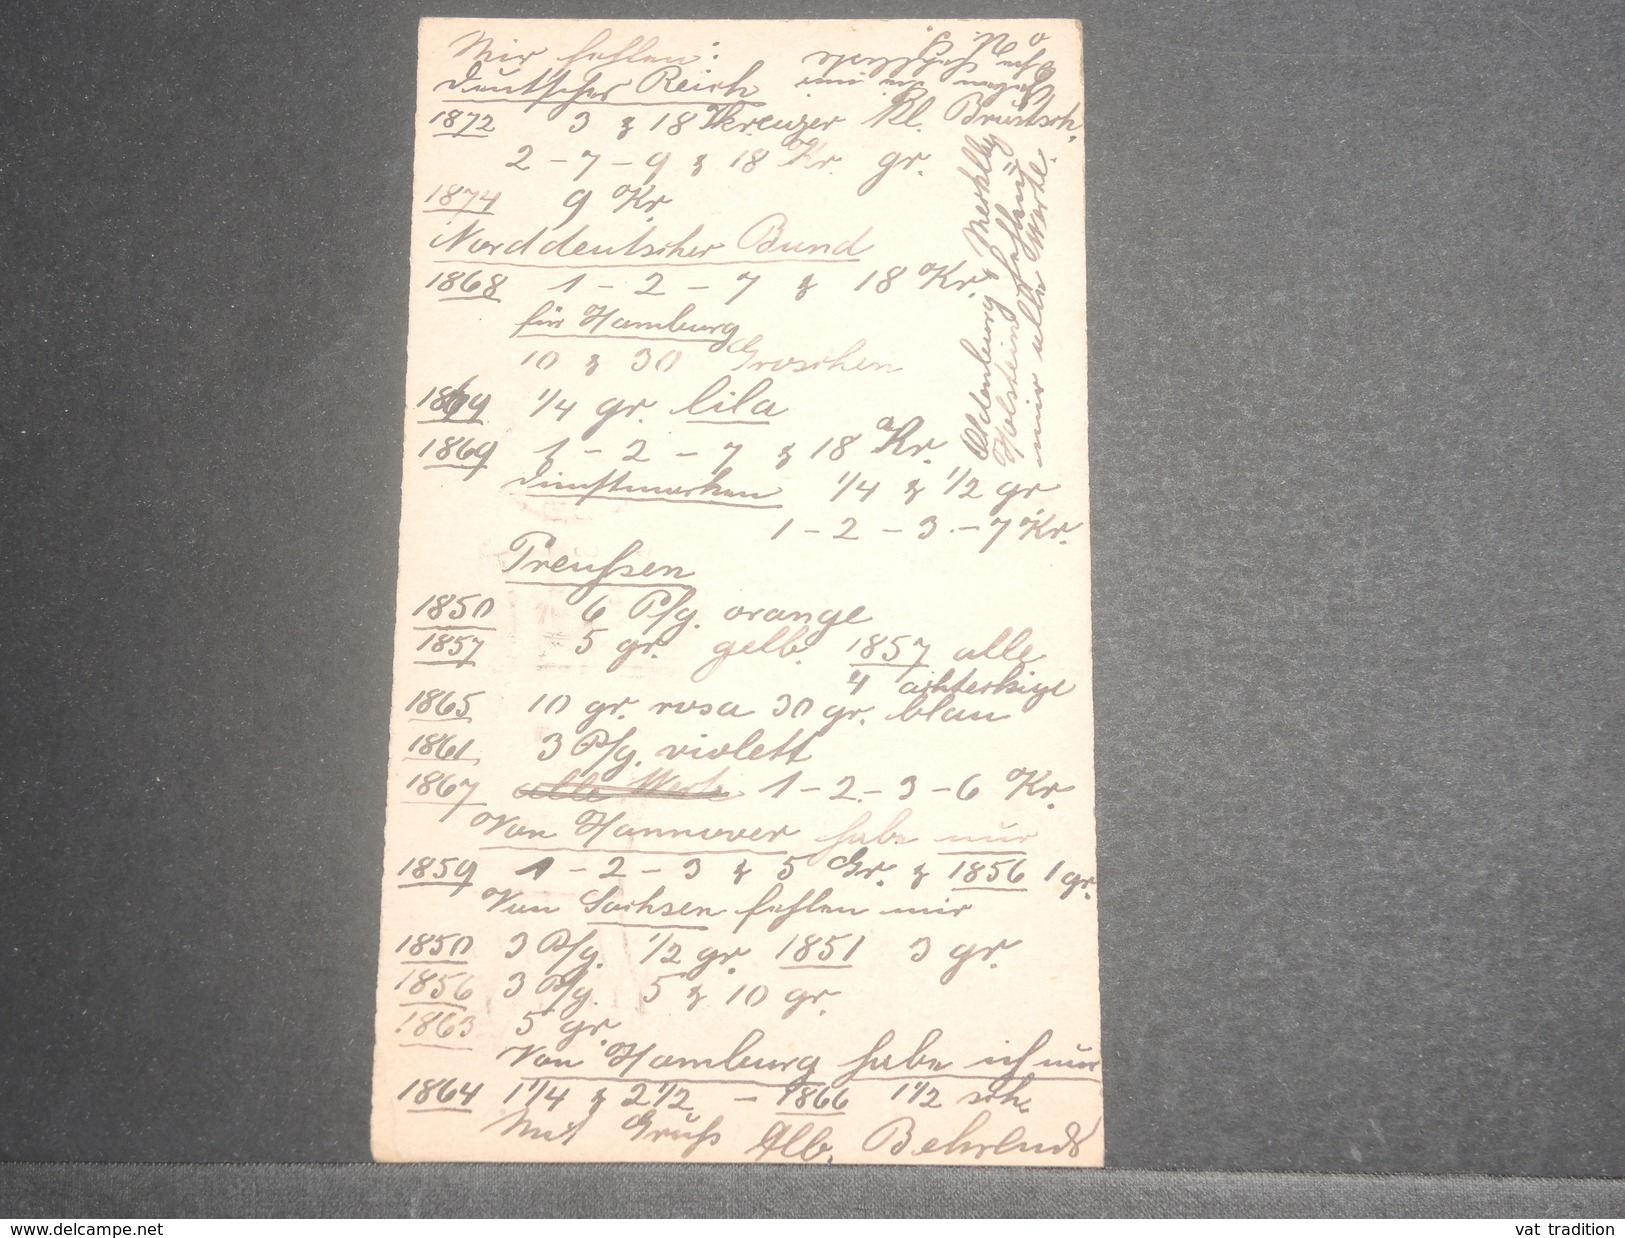 Mir fehlen:
Deutsches Reich
1872 3 & 18 Kreuzer kl. Brustsch.
2 - 7 - 9 & 18 Kr. gr.
1874 9 Kr.
Norddeutscher Bund
1868 1 - 2 - 7 & 18 Kr.
für Hamburg
10 & 30 Groschen
1869 1/4 gr. lila
1869 1 - 2 - 7 & 18 Kr.
Dienstmarken 1/4 & 1/2 gr
1 - 2 - 3 - 7 Kr.
Preußen
1850 6 Pfg. orange
1857 5 gr. gelb. 1857 alle
4 achteckige
1865 10 gr. rosa 30 gr. blau
1861 3 Pfg. violett
1867 alle Werte 1 - 2 - 3 - 6 Kr.
Von Hannover habe nur
1859 1 - 2 - 3 & 5 Gr. & 1856 1 gr.
Von Sachsen fehlen mir
1850 3 Pfg. 1/2 gr. 1851 3 gr.
1856 3 Pfg. 5 & 10 gr.
1863 5 gr.
Von Hamburg habe ich nur
1864 1 1/4 & 2 1/2 - 1866 1 1/2 sch.
Mit Gruß Alb. Behrends
Oldenburg &
Holstein fehlen
mir alle Werte.
delcampe.net
vat tradition